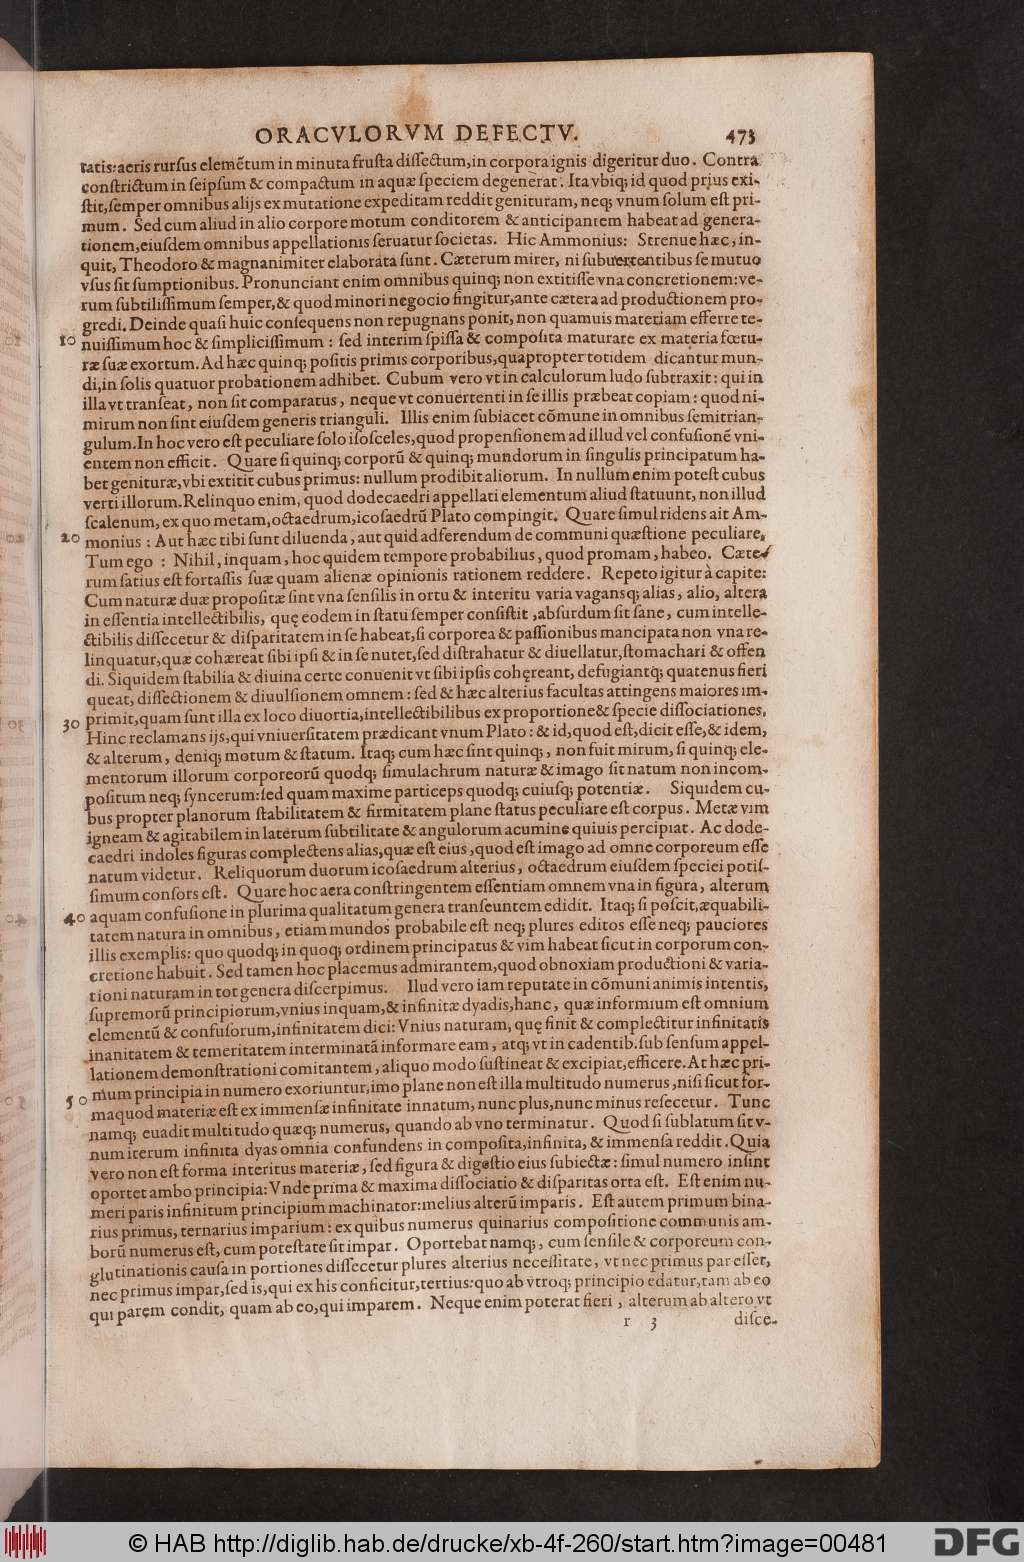 ORACVLORVM DEFECTV. 473
tatis: aeris rursus elemẽtum in minuta frusta dissectum, in corpora ignis digeritur duo. Contra
constrictum in seipsum & compactum in aquæ speciem degenerat. Ita vbiq; id quod prius exi-
stit, semper omnibus alijs ex mutatione expeditam reddit genituram, neq; vnum solum est pri-
mum. Sed cum aliud in alio corpore motum conditorem & anticipantem habeat ad genera-
tionem, eiusdem omnibus appellationis seruatur societas. Hic Ammonius: Strenue hæc, in-
quit, Theodoro & magnanimiter elaborata sunt. Cæterum mirer, ni subuertentibus se mutuo
vsus sit sumptionibus. Pronunciant enim omnibus quinq; non extitisse vna concretionem: ve-
rum subtilissimum semper, & quod minori negocio fingitur, ante cætera ad productionem pro-
gredi. Deinde quasi huic consequens non repugnans ponit, non quamuis materiam efferre te-
10 nuissimum hoc & simplicissimum: sed interim spissa & composita maturare ex materia fœtu-
ræ suæ exortum. Ad hæc quinq; positis primis corporibus, quapropter totidem dicantur mun-
di, in solis quatuor probationem adhibet. Cubum vero vt in calculorum ludo subtraxit: qui in
illa vt transeat, non sit comparatus, neque vt conuertenti in se illis præbeat copiam: quod ni-
mirum non sint eiusdem generis trianguli. Illis enim subiacet cõmune in omnibus semitrian-
gulum. In hoc vero est peculiare solo isosceles, quod propensionem ad illud vel confusionẽ vni-
entem non efficit. Quare si quinq; corporũ & quinq; mundorum in singulis principatum ha-
bet genituræ, vbi extitit cubus primus: nullum prodibit aliorum. In nullum enim potest cubus
verti illorum. Relinquo enim, quod dodecaedri appellati elementum aliud statuunt, non illud
scalenum, ex quo metam, octaedrum, icosaedrũ Plato compingit. Quare simul ridens ait Am-
20 monius: Aut hæc tibi sunt diluenda, aut quid adferendum de communi quæstione peculiare.
Tum ego: Nihil, inquam, hoc quidem tempore probabilius, quod promam, habeo. Cæte-
rum satius est fortassis suæ quam alienæ opinionis rationem reddere. Repeto igitur à capite:
Cum naturæ duæ propositæ sint vna sensilis in ortu & interitu varia vagansq; alias, alio, altera
in essentia intellectibilis, quę eodem in statu semper consistit, absurdum sit sane, cum intelle-
ctibilis dissecetur & disparitatem in se habeat, si corporea & passionibus mancipata non vna re-
linquatur, quæ cohæreat sibi ipsi & in se nutet, sed distrahatur & diuellatur, stomachari & offen
di. Siquidem stabilia & diuina certe conuenit vt sibi ipsis cohęreant, defugiantq; quatenus fieri
queat, dissectionem & diuulsionem omnem: sed & hæc alterius facultas attingens maiores im-
30 primit, quam sunt illa ex loco diuortia, intellectibilibus ex proportione & specie dissociationes.
Hinc reclamans ijs, qui vniuersitatem prædicant vnum Plato: & id, quod est, dicit esse, & idem,
& alterum, deniq; motum & statum. Itaq; cum hæc sint quinq;, non fuit mirum, si quinq; ele-
mentorum illorum corporeorũ quodq; simulachrum naturæ & imago sit natum non incom-
positum neq; syncerum: sed quam maxime particeps quodq; cuiusq; potentiæ. Siquidem cu-
bus propter planorum stabilitatem & firmitatem plane status peculiare est corpus. Metæ vim
igneam & agitabilem in laterum subtilitate & angulorum acumine quiuis percipiat. Ac dode-
caedri indoles figuras complectens alias, quæ est eius, quod est imago ad omne corporeum esse
natum videtur. Reliquorum duorum icosaedrum alterius, octaedrum eiusdem speciei potis-
simum consors est. Quare hoc aera constringentem essentiam omnem vna in figura, alterum
40 aquam confusione in plurima qualitatum genera transeuntem edidit. Itaq; si poscit, æquabili-
tatem natura in omnibus, etiam mundos probabile est neq; plures editos esse neq; pauciores
illis exemplis: quo quodq; in quoq; ordinem principatus & vim habeat sicut in corporum con-
cretione habuit. Sed tamen hoc placemus admirantem, quod obnoxiam productioni & varia-
tioni naturam in tot genera discerpimus. Ilud vero iam reputate in cõmuni animis intentis,
supremorũ principiorum, vnius inquam, & infinitæ dyadis, hanc, quæ informium est omnium
elementũ & confusorum, infinitatem dici: Vnius naturam, quę finit & complectitur infinitatis
inanitatem & temeritatem interminatã informare eam, atq; vt in cadentib. sub sensum appel-
lationem demonstrationi comitantem, aliquo modo sustineat & excipiat, efficere. At hæc pri-
mum principia in numero exoriuntur, imo plane non est illa multitudo numerus, nisi sicut for-
50 maquod materiæ est ex immensæ infinitate innatum, nunc plus, nunc minus resecetur. Tunc
namq; euadit multitudo quæq; numerus, quando ab vno terminatur. Quod si sublatum sit v-
num iterum infinita dyas omnia confundens in composita, infinita, & immensa reddit. Quia
vero non est forma interitus materiæ, sed figura & digestio eius subiectæ: simul numero insint
oportet ambo principia: Vnde prima & maxima dissociatio & disparitas orta est. Est enim nu-
meri paris infinitum principium machinator: melius alterũ imparis. Est autem primum bina-
rius primus, ternarius imparium: ex quibus numerus quinarius compositione communis am-
borũ numerus est, cum potestate sit impar. Oportebat namq;, cum sensile & corporeum con-
glutinationis causa in portiones dissecetur plures alterius necessitate, vt nec primus par esset,
nec primus impar, sed is, qui ex his conficitur, tertius: quo ab vtroq; principio edatur, tam ab eo
qui parem condit, quam ab eo, qui imparem. Neque enim poterat fieri, alterum ab altero vt
r 3 disce-
© HAB http://diglib.hab.de/drucke/xb-4f-260/start.htm?image=00481 DFG